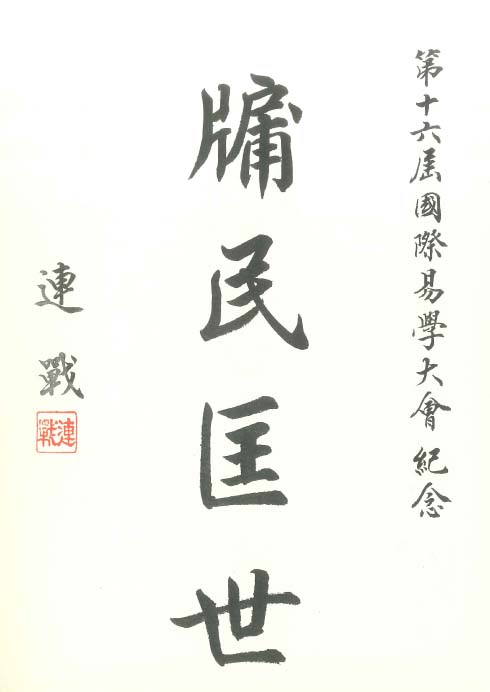 第十六屆國際易學大會 紀念
牖民匡世
連戰
連戰